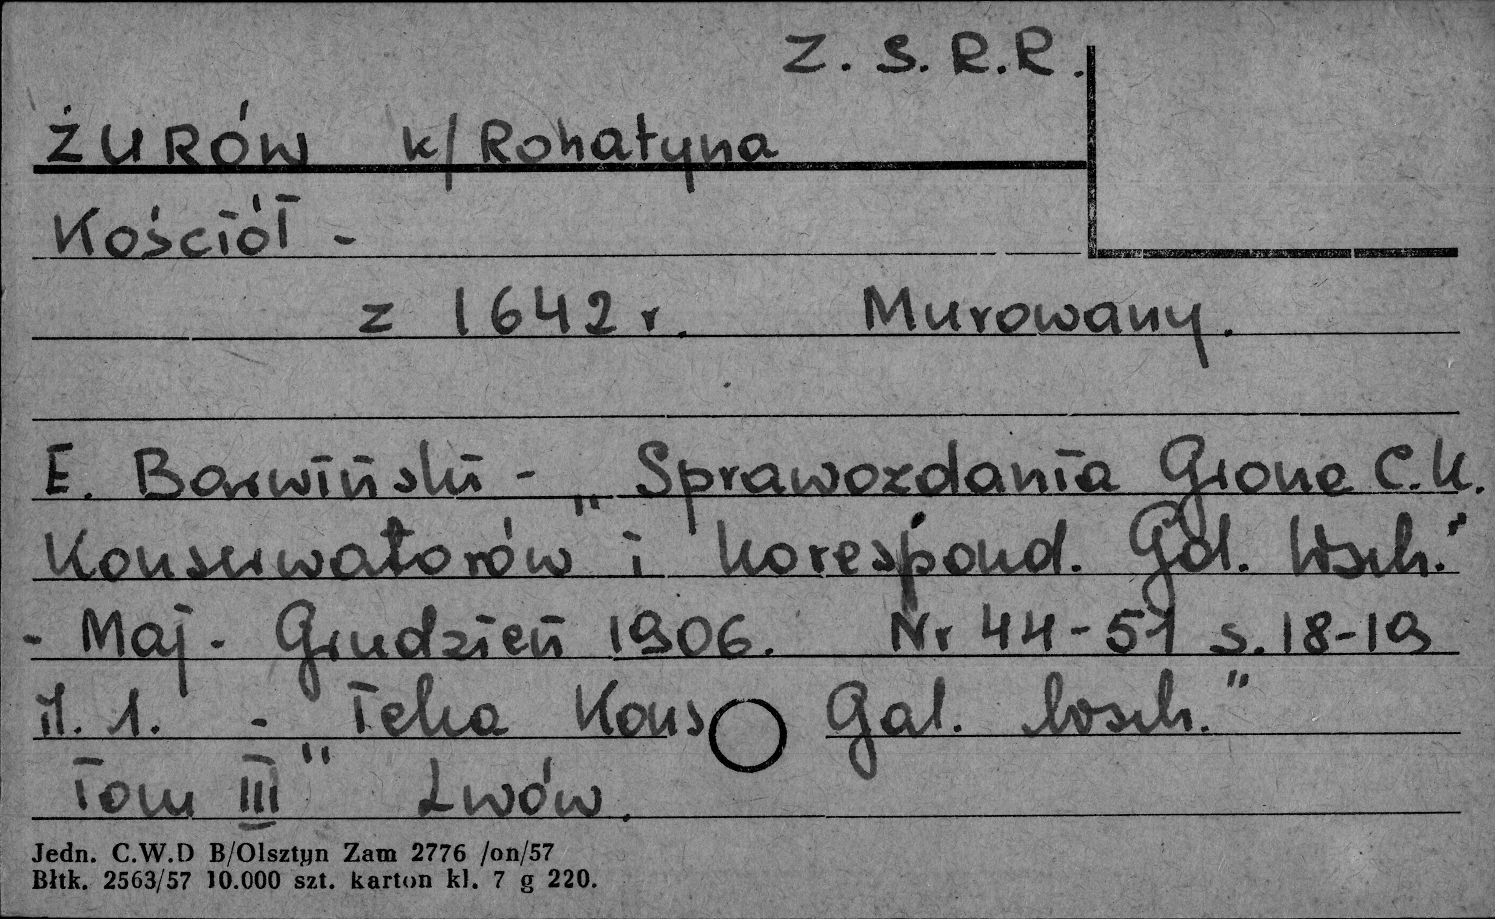 Z. S. R. R.
ŻURÓW k/Rohatyna
Kościół -
z 1642 r. Murowany.
E. Barwiński - „Sprawozdania Grona C.K.
Konserwatorów i Korespond. Gal. Wsch."
- Maj - Grudzień 1906. Nr 44-51 s. 18-19
il. 1. - „Teka Kons Gal. Wsch."
Tom III Lwów.
Jedn. C.W.D B/Olsztyn Zam 2776 /on/57
Błtk. 2563/57 10.000 szt. karton kl. 7 g 220.